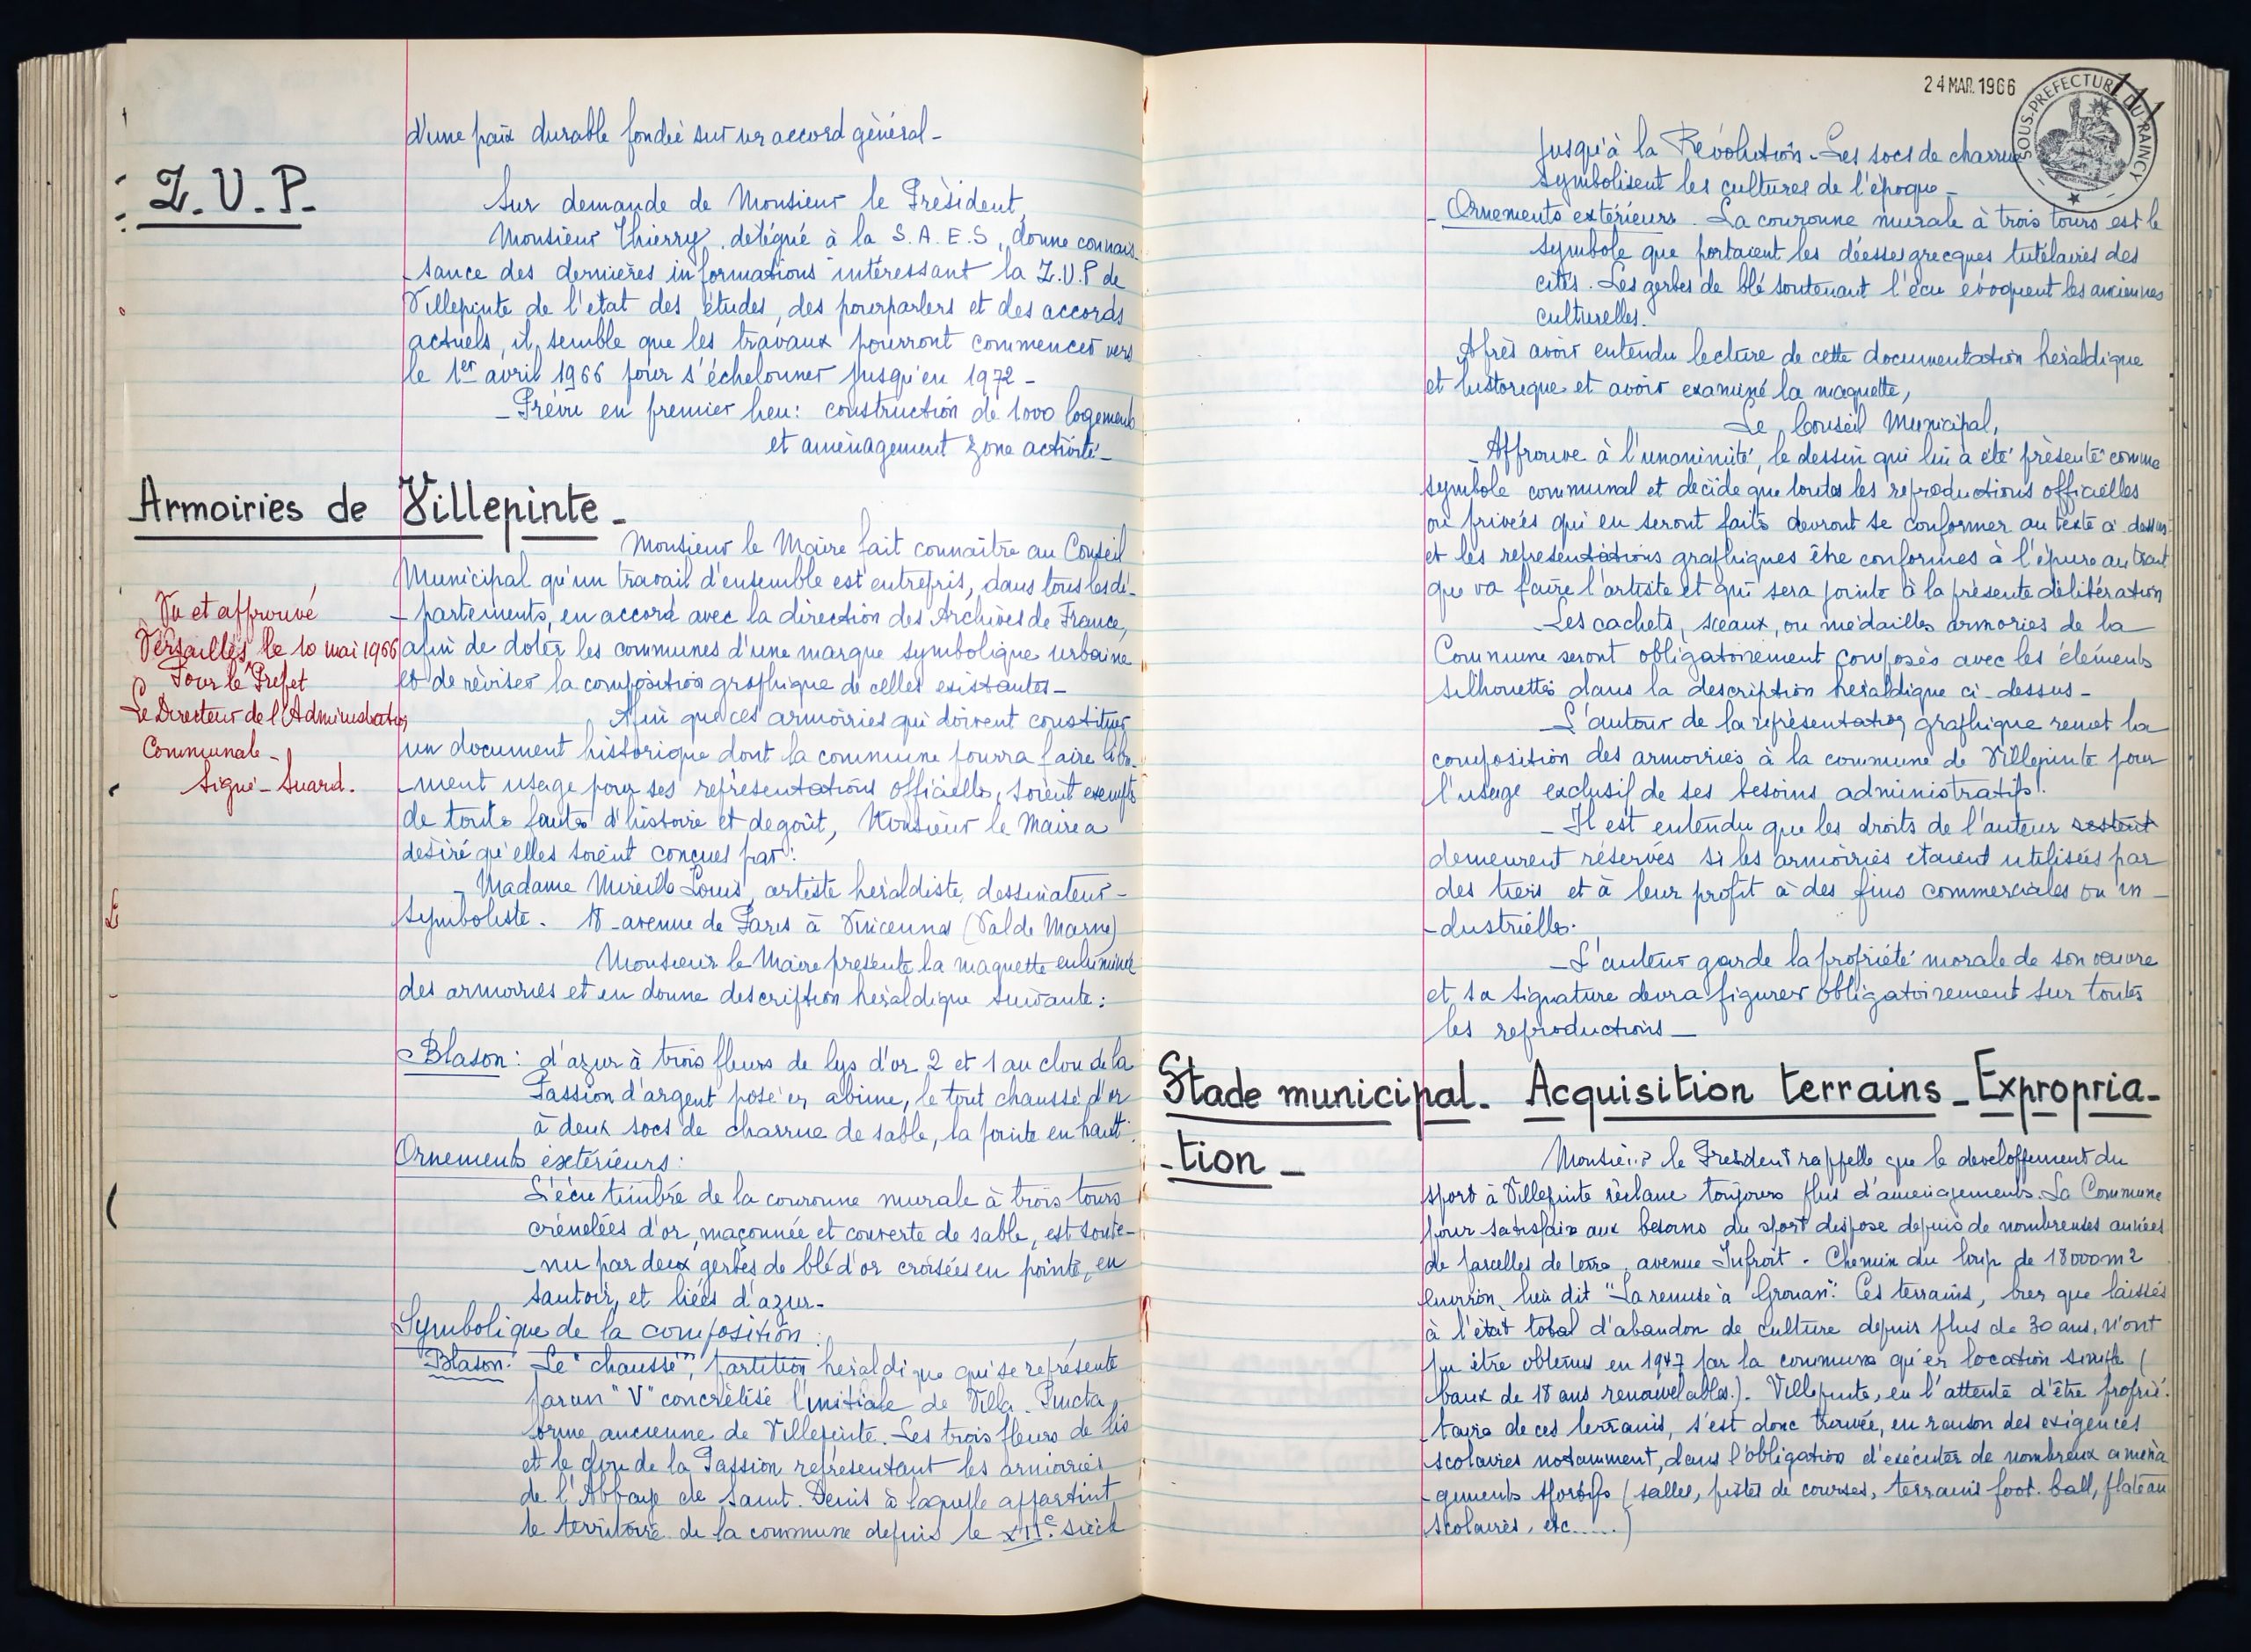 d'une paix durable fondée sur un accord général -
Z.V.P.
Sur demande de Monsieur le Président,
Monsieur Thierry, délégué à la S.A.E.S, donne connais-
-sance des dernières informations intéressant la Z.V.P de
Villepinte de l'etat des études, des pourparlers et des accords
actuels, il semble que les travaux pourront commencer vers
le 1er avril 1966 pour s'échelonner jusqu'en 1972 -
- Prévu en premier lieu : construction de 1000 logements
et aménagement zone activité -
Armoiries de Villepinte -
Monsieur le Maire fait connaître au Conseil
Municipal qu'un travail d'ensemble est entrepris, dans tous les dé-
-partements, en accord avec la direction des Archives de France,
afin de doter les communes d'une marque symbolique urbaine
et de réviser la composition graphique de celles existantes -
Vu et approuvé
Versailles le 10 mai 1966
Pour le Prefet
Le Directeur de l'Administration
Communale -
Signé - Suard.
Afin que ces armoiries qui doivent constituer
un document historique dont la commune pourra faire
-ment usage pour ses représentations officielles, soient exempts
de toute faute d'histoire et de goût, Monsieur le Maire a
désiré qu'elles soient conçues par :
- Madame Mireille Louis, artiste héraldiste, dessinateur -
symboliste. 18 - avenue de Paris à Vincennes (Val de Marne)
Monsieur le Maire présente la maquette enluminée
des armoiries et en donne description héraldique suivante :
- Blason : d'azur à trois fleurs de lys d'or 2 et 1 au clou de la
Passion d'argent posé en abime, le tout chaussé d'or
à deux socs de charrue de sable, la pointe en haut.
Ornements extérieurs :
L'écu timbré de la couronne murale à trois tours
crénelées d'or, maçonnée et couverte de sable, est soute-
-nu par deux gerbes de blé d'or croisées en pointe, en
sautoir, et liées d'azur -
Symbolique de la composition :
Blason. Le "chaussé", partition héraldique qui se représente
par un "V" concrétise l'initiale de Villa - Puicta,
forme ancienne de Villepinte. Les trois fleurs de lis
et le clou de la Passion représentant les armoiries
de l'Abbaye de Saint. Denis à laquelle appartint
le territoire de la commune depuis le XIIe siècle
24 MAR. 1966
111
SOUS-PREFECTURE DU RAINCY
jusqu'à la Révolution - Les socs de charrue
symbolisent les cultures de l'époque -
- Ornements extérieurs. La couronne murale à trois tours est le
symbole que portaient les déesses grecques tutélaires des
cités. Les gerbes de blé soutenant l'écu évoquent les anciennes
culturelles.
Après avoir entendu lecture de cette documentation héraldique
et historique et avoir examiné la maquette,
Le Conseil Municipal,
- Approuve à l'unanimité, le dessin qui lui a été présenté comme
symbole communal et décide que toutes les reproductions officielles
ou privées qui en seront faits devront se conformer au texte ci-dessus
et les représentations graphiques être conformes à l'épure au trait
que va faire l'artiste et qui sera jointe à la présente délibération
- Les cachets, sceaux, ou médailles armories de la
Commune seront obligatoirement composés avec les éléments
silhouettés dans la description héraldique ci-dessus -
- L'auteur de la représentation graphique remet la
composition des armoiries à la commune de Villepinte pour
l'usage exclusif de ses besoins administratifs.
- Il est entendu que les droits de l'auteur restent
demeurent réservés si les armoiries étaient utilisées par
des tiers et à leur profit à des fins commerciales ou in-
-dustrielles.
- L'auteur garde la propriété morale de son œuvre
et sa signature devra figurer obligatoirement sur toutes
les reproductions -
Stade municipal - Acquisition terrains - Expropria-
-tion -
Monsieur le Président rappelle que le developpement du
sport à Villepinte réclame toujours plus d'aménagements. La Commune
pour satisfaire aux besoins du sport dispose depuis de nombreuses années
de parcelles de terre, avenue Jufroit - Chemin du loup de 18000 m2
environ, lieu dit "La remise à Grouan". Ces terrains, bien que laissés
à l'état total d'abandon de culture depuis plus de 30 ans, n'ont
pu être obtenus en 1947 par la commune qu'en location simple (
baux de 18 ans renouvelables). Villepinte, en l'attente d'être proprié-
-taire de ces terrains, s'est donc trouvée, en raison des exigences
scolaires notamment, dans l'obligation d'exécuter de nombreux aména
-gements sportifs (salles, pistes de courses, terrains foot. ball, plateau
scolaires, etc.....)